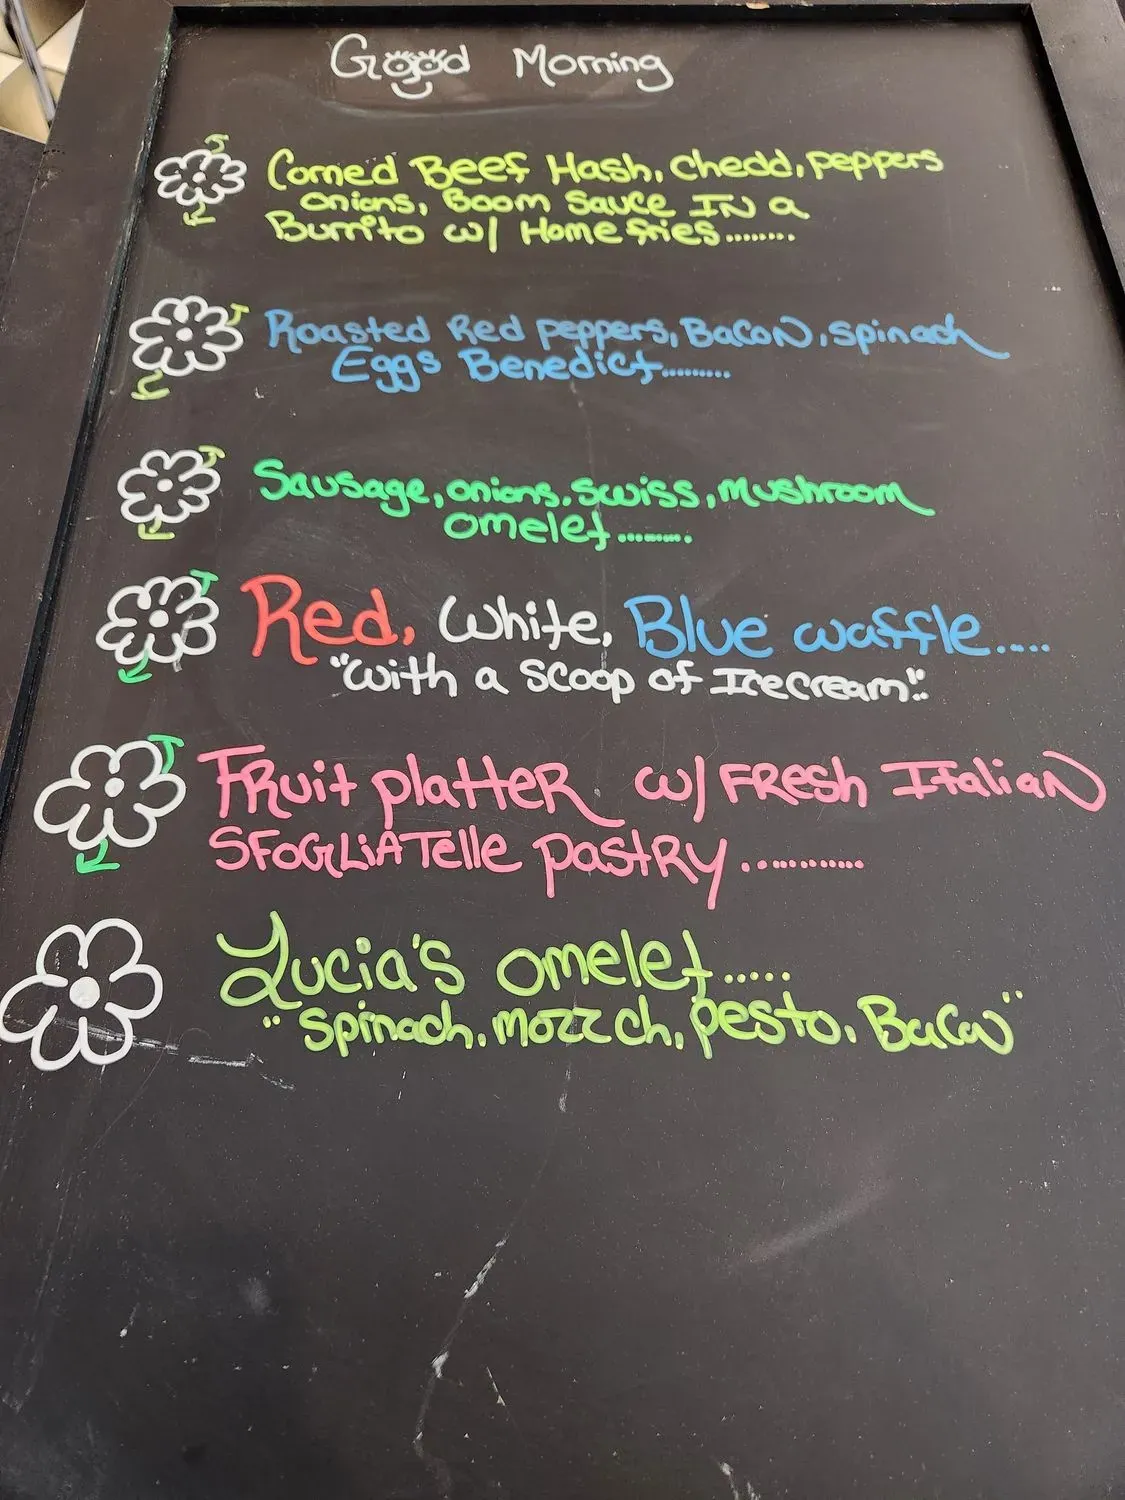 Good Morning
Corned Beef Hash, Chedd, peppers
onions, Boom Sauce IN a
Burrito w/ Homefries........
Roasted Red peppers, Bacon, spinach
Eggs Benedict.........
Sausage, onions, swiss, Mushroom
omelet........
Red, White, Blue waffle.....
"with a scoop of Icecream"
Fruit platter w/ Fresh Italian
SFOGLIATelle pastry............
Lucia's omelet.....
"spinach, mozz ch, pesto, Bacon"